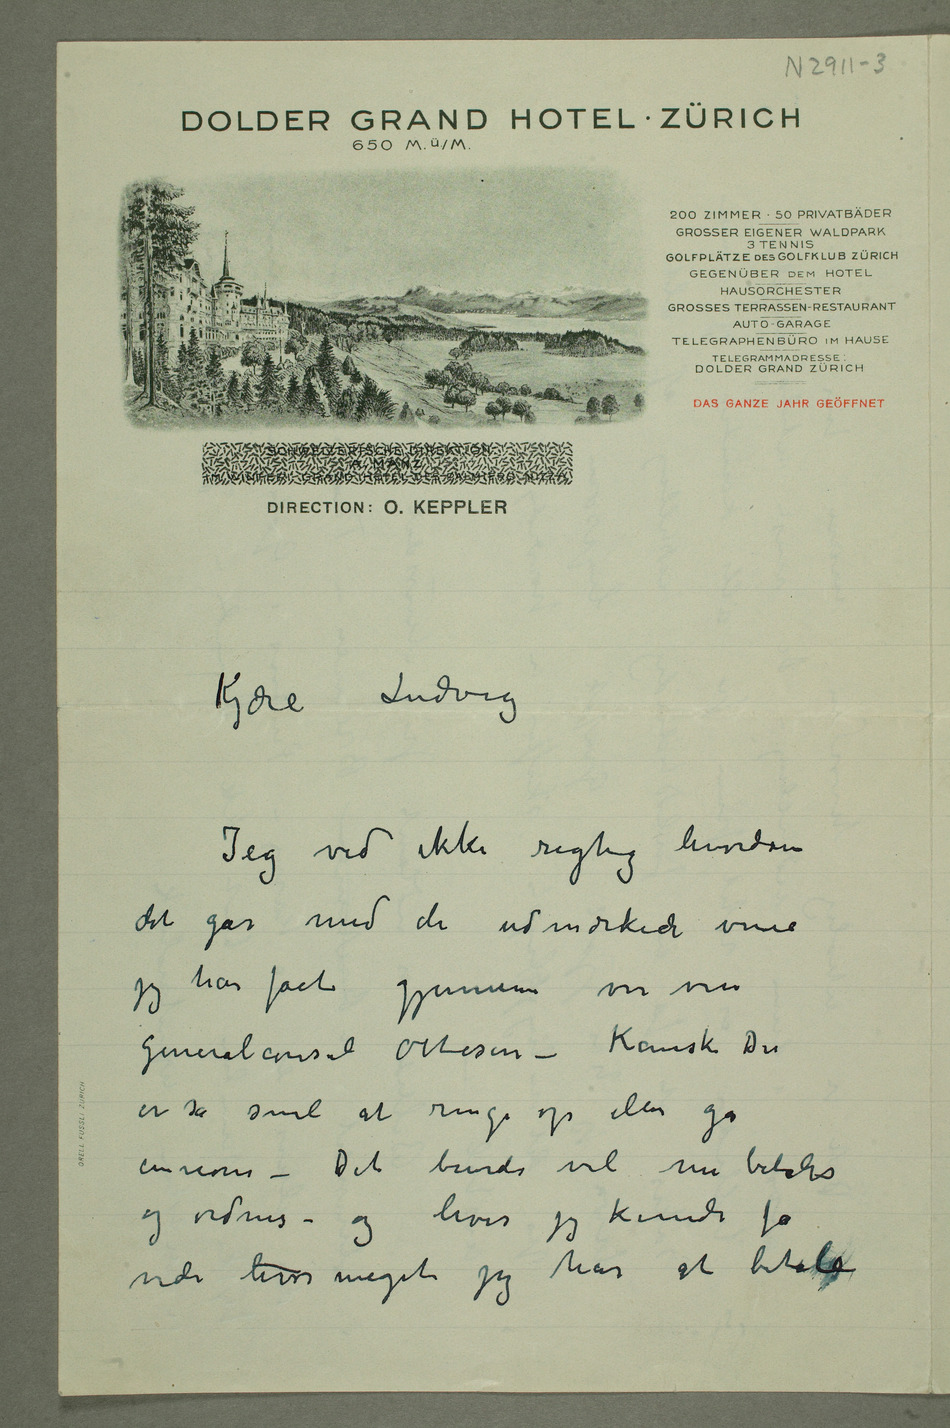 N2911-3
DOLDER GRAND HOTEL · ZÜRICH
650 M.ü/M.
200 ZIMMER · 50 PRIVATBÄDER
GROSSER EIGENER WALDPARK
3 TENNIS
GOLFPLÄTZE DES GOLFKLUB ZÜRICH
GEGENÜBER DEM HOTEL
HAUSORCHESTER
GROSSES TERRASSEN-RESTAURANT
AUTO-GARAGE
TELEGRAPHENBÜRO IM HAUSE
TELEGRAMMADRESSE:
DOLDER GRAND ZÜRICH
DAS GANZE JAHR GEÖFFNET
SCHWEIZERISCHE DIREKTION
DIRECTION: O. KEPPLER
Kjære Ludvig
Jeg ved ikke regtig hvordan
det gar med de udmærkede vine
jg har faet gjennem vor ven
Generalconsul Ottesen – Kanske Du
er sa snil at ringe op eller ga
indom – Det burde vel nu betales
og ordnes – og hvis jg kunde fa
vide hvor meget jg har at betale
ORELL FÜSSLI ZÜRICH